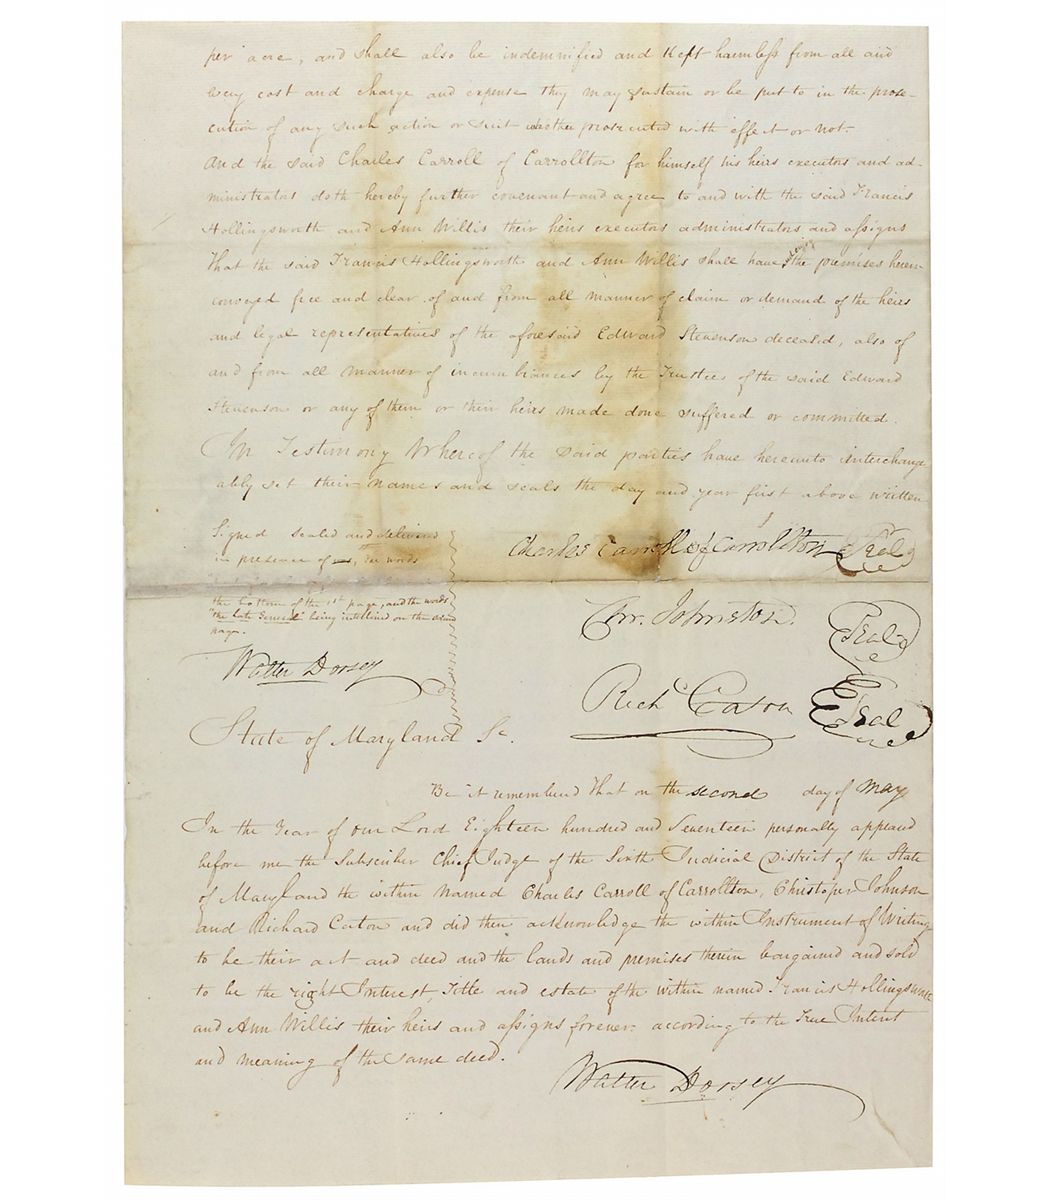 per acre, and shall also be indemnified and kept harmless from all and
every cost and charge and expense they may sustain or be put to in the prose-
cution of any such action or suit whether prosecuted with effect or not-
And the said Charles Carroll of Carrollton for himself his heirs executors and ad-
ministrators doth hereby further covenant and agree to and with the said Francis
Hollingsworth and Ann Willis their heirs executors administrators and assigns
That the said Francis Hollingsworth and Ann Willis shall have the premises herein
conveyed free and clear of and from all manner of claim or demand of the heirs
and legal representatives of the aforesaid Edward Stevenson deceased, also of
and from all manner of incumbrances by the Trustees of the said Edward
Stevenson or any of them or their heirs made done suffered or committed.
In Testimony Whereof the said parties have hereunto interchange
ably set their names and seals the day and year first above written
Signed sealed and delivered
in presence of the words
Charles Carroll of Carrollton Seal
the bottom of the 1st page, and the words
"the late General" being interlined on the second
page.
Chr. Johnston. Seal
Walter Dorsey
Richd Caton Seal
State of Maryland Sc.
Be it remembered That on the second day of May
In the Year of our Lord Eighteen hundred and Seventeen personally appeared
before me the Subscriber Chief Judge of the Sixth Judicial District of the State
of Maryland the within named Charles Carroll of Carrollton, Christoper Johnson
and Richard Caton and did then acknowledge the within Instrument of Writing
to be their act and deed and the lands and premises therein bargained and sold
to be the right Interest, Title and estate of the within named Francis Hollingsworth
and Ann Willis their heirs and assigns forever according to the True Intent
and meaning of the same deed.
Walter Dorsey